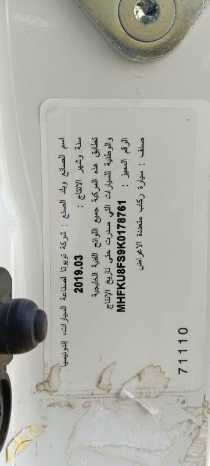 اسم الصانع وبلد الصنع : شركة تويوتا لصناعة السيارات، إندونيسيا
سنة وشهر الإنتاج : 2019.03
تطابق هذه المركبة جميع اللوائح الفنية الخليجية
والوطنية للسيارات التي صدرت حتى تاريخ الإنتاج
الرقم المميز : MHFKU8FS9K0178761
صنف : سيارة ركاب متعددة الأغراض
71110